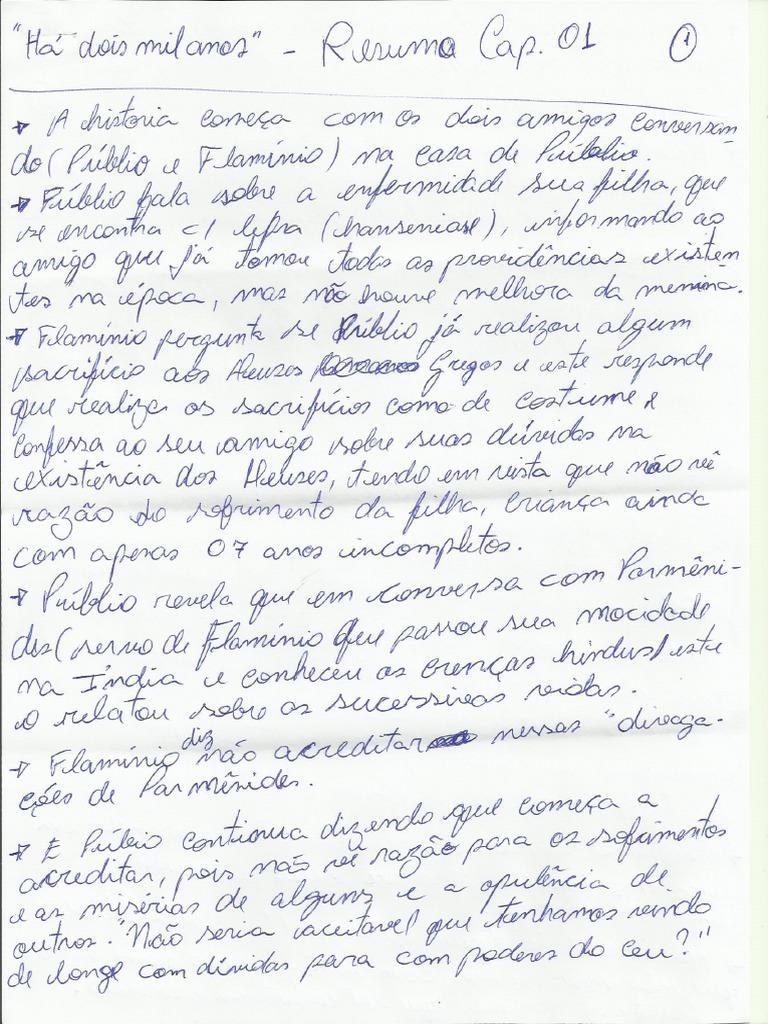 "Há dois mil anos" - Resumo Cap. 01 1
→ A historia começa com os dois amigos conversan-
do (Públio e Flamínio) na casa de Públio.
→ Públio fala sobre a enfermidade sua filha, que
se encontra c/ lepra (hanseníase), informando ao
amigo que já tomou todas as providências existen
tes na época, mas não houve melhora da menina.
→ Flamínio pergunta se Públio já realizou algum
sacrifício aos Deuses Gregos e este responde
que realiza os sacrifícios como de costume e
confessa ao seu amigo sobre suas dúvidas na
existência dos Deuses, tendo em vista que não vê
razão do sofrimento da filha, criança ainda
com apenas 07 anos incompletos.
→ Públio revela que em conversa com Parmêni-
des (servo de Flamínio que passou sua mocidade
na Índia e conheceu as crenças hindus) este
o relatou sobre as sucessivas vidas.
→ Flamínio diz não acreditar nessas "divaga-
ções de Parmênides.
→ E Púbio continua dizendo que começa a
acreditar, pois não vê razão para os sofrimentos
e as misérias de alguns e a opulência de
outros. "Não seria aceitavel que tenhamos vindo
de longe com dívidas para com poderes do ceu?"